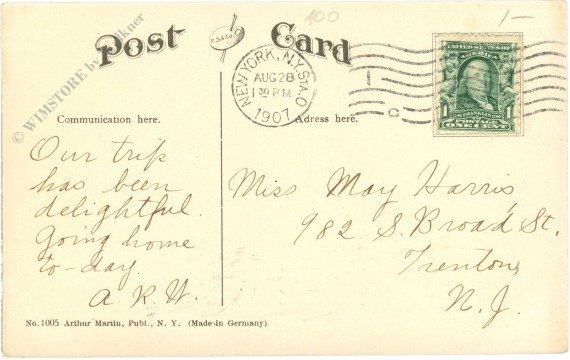 100
1-
Post Card
NEW YORK, N.Y. STA. O
AUG 28
1 30 P.M.
1907
C
UNITED STATES OF
1 1
POSTAGE
ONE CENT
© WIMSTORE by
Communication here.
Adress here.
Our trip
has been
delightful.
Going home
to-day.
A R W.
Miss May Harris
982 S. Broad St.
Trenton,
N. J.
No. 1005 Arthur Martin, Publ., N. Y. (Made in Germany).